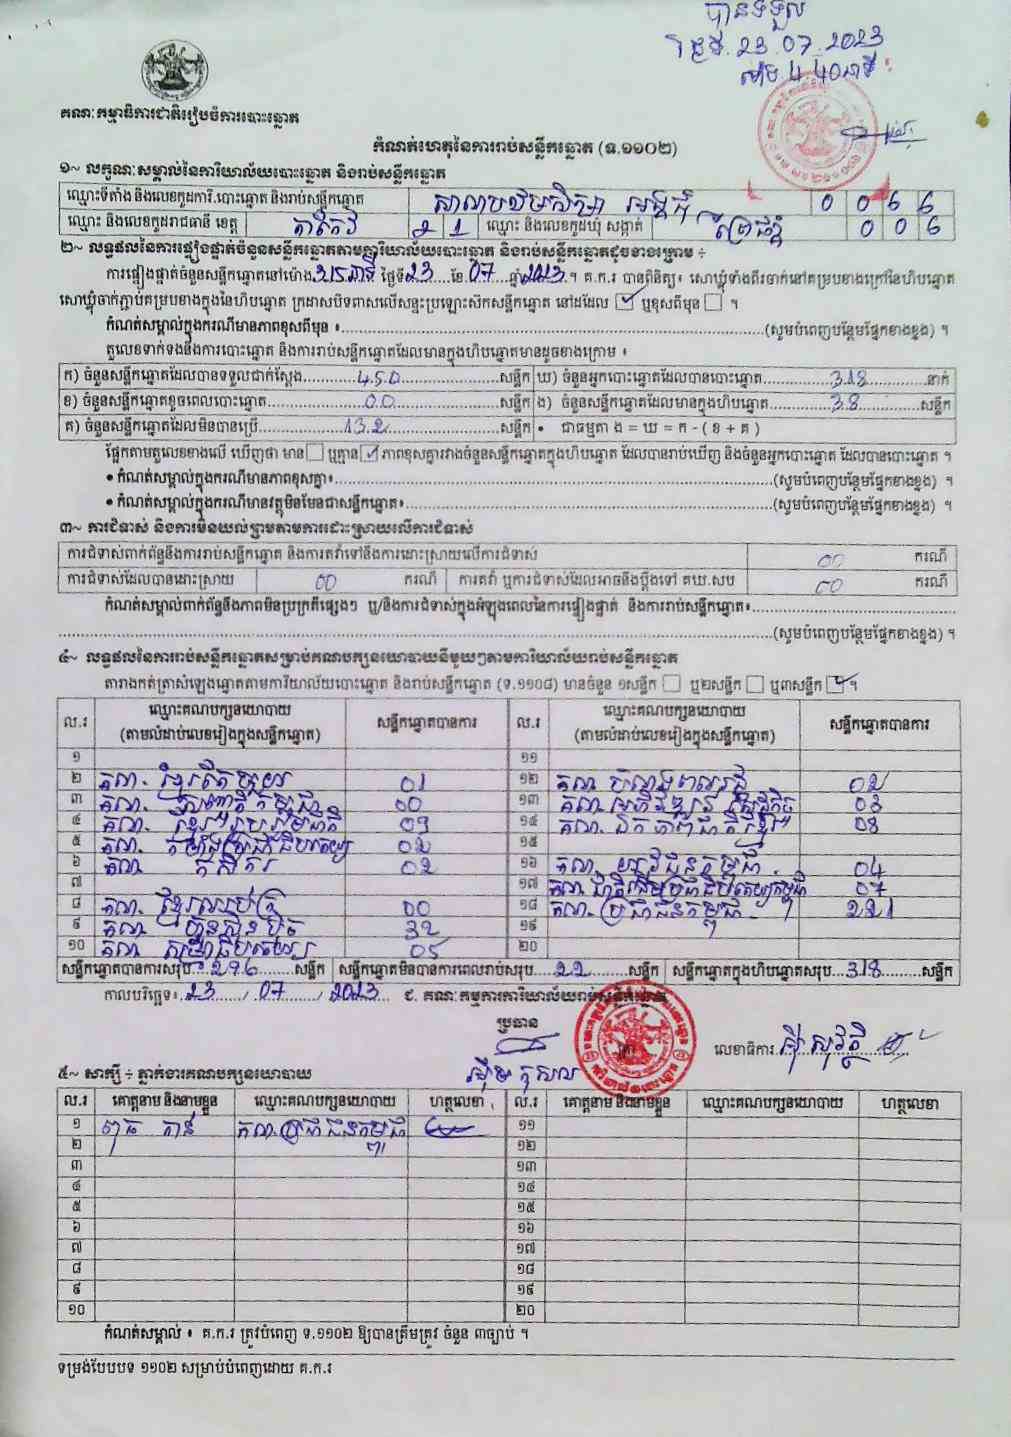 បានទទួល
ថ្ងៃទី.23.07.2023
ម៉ោង 4 40នាទី
គណៈកម្មាធិការជាតិរៀបចំការបោះឆ្នោត
កំណត់ហេតុនៃការរាប់សន្លឹកឆ្នោត (ទ.១១០២)
១~ លក្ខណៈសម្គាល់នៃការិយាល័យបោះឆ្នោត និងរាប់សន្លឹកឆ្នោត
ឈ្មោះទីតាំង និងលេខកូដការិ.បោះឆ្នោត និងរាប់សន្លឹកឆ្នោត សាលាបឋមសិក្សា 0 0 6 6
ឈ្មោះ និងលេខកូដរាជធានី ខេត្ត តាកែវ 2 1 ឈ្មោះ និងលេខកូដឃុំ សង្កាត់ 0 0 6
២~ លទ្ធផលនៃការផ្ទៀងផ្ទាត់ចំនួនសន្លឹកឆ្នោតតាមការិយាល័យបោះឆ្នោត និងរាប់សន្លឹកឆ្នោតដូចខាងក្រោម ÷
ការផ្ទៀងផ្ទាត់ចំនួនសន្លឹកឆ្នោតនៅម៉ោង 3 15 នាទី ថ្ងៃទី 23 ខែ 07 ឆ្នាំ 2023 ។ គ.ក.រ បានពិនិត្យ៖ សោឃ្នុំទាំងពីរចាក់នៅគម្របខាងក្រៅនៃហិបឆ្នោត
សោឃ្នុំចាក់ភ្ជាប់គម្របខាងក្នុងនៃហិបឆ្នោត ក្រដាសបិទពាសលើសន្ទះប្រឡោះស៊កសន្លឹកឆ្នោត នៅដដែល ☑ ឬខុសពីមុន ☐ ។
កំណត់សម្គាល់ក្នុងករណីមានភាពខុសពីមុន ៖ (សូមបំពេញបន្ថែមផ្នែកខាងខ្នង) ។
តួលេខទាក់ទងនឹងការបោះឆ្នោត និងការរាប់សន្លឹកឆ្នោតដែលមានក្នុងហិបឆ្នោតមានដូចខាងក្រោម ៖
ក) ចំនួនសន្លឹកឆ្នោតដែលបានទទួលជាក់ស្តែង 450 សន្លឹក ឃ) ចំនួនអ្នកបោះឆ្នោតដែលបានបោះឆ្នោត 318 នាក់
ខ) ចំនួនសន្លឹកឆ្នោតខូចពេលបោះឆ្នោត 00 សន្លឹក ង) ចំនួនសន្លឹកឆ្នោតដែលមានក្នុងហិបឆ្នោត 38 សន្លឹក
គ) ចំនួនសន្លឹកឆ្នោតដែលមិនបានប្រើ 132 សន្លឹក • ជាធម្មតា ង = ឃ = ក - ( ខ + គ )
ផ្អែកតាមតួលេខខាងលើ ឃើញថា មាន ☐ ឬគ្មាន ☑ ភាពខុសគ្នារវាងចំនួនសន្លឹកឆ្នោតក្នុងហិបឆ្នោត ដែលបានរាប់ឃើញ និងចំនួនអ្នកបោះឆ្នោត ដែលបានបោះឆ្នោត ។
• កំណត់សម្គាល់ក្នុងករណីមានភាពខុសគ្នា៖ (សូមបំពេញបន្ថែមផ្នែកខាងខ្នង) ។
• កំណត់សម្គាល់ក្នុងករណីមានវត្ថុមិនមែនជាសន្លឹកឆ្នោត៖ (សូមបំពេញបន្ថែមផ្នែកខាងខ្នង) ។
៣~ ការជំទាស់ និងការមិនយល់ព្រមតាមការដោះស្រាយលើការជំទាស់
ការជំទាស់ពាក់ព័ន្ធនឹងការរាប់សន្លឹកឆ្នោត និងការតវ៉ាទៅនឹងការដោះស្រាយលើការជំទាស់ 00 ករណី
ការជំទាស់ដែលបានដោះស្រាយ 00 ករណី ការតវ៉ា ឬការជំទាស់ដែលអាចនឹងប្តឹងទៅ គឃ.សប 00 ករណី
កំណត់សម្គាល់ពាក់ព័ន្ធនឹងភាពមិនប្រក្រតីផ្សេងៗ ឬ/និងការជំទាស់ក្នុងអំឡុងពេលនៃការផ្ទៀងផ្ទាត់ និងការរាប់សន្លឹកឆ្នោត៖
(សូមបំពេញបន្ថែមផ្នែកខាងខ្នង) ។
៤~ លទ្ធផលនៃការរាប់សន្លឹកឆ្នោតសម្រាប់គណបក្សនយោបាយនីមួយៗតាមការិយាល័យរាប់សន្លឹកឆ្នោត
តារាងកត់ត្រាសំឡេងឆ្នោតតាមការិយាល័យបោះឆ្នោត និងរាប់សន្លឹកឆ្នោត (ទ.១១០៨) មានចំនួន ១សន្លឹក ☐ ឬ២សន្លឹក ☐ ឬ៣សន្លឹក ☑ ។
ល.រ ឈ្មោះគណបក្សនយោបាយ (តាមលំដាប់លេខរៀងក្នុងសន្លឹកឆ្នោត) សន្លឹកឆ្នោតបានការ ល.រ ឈ្មោះគណបក្សនយោបាយ (តាមលំដាប់លេខរៀងក្នុងសន្លឹកឆ្នោត) សន្លឹកឆ្នោតបានការ
១ ១១
២ គណ. 01 ១២ គណ 02
៣ គណ. 00 ១៣ គណ 03
៤ គណ. 09 ១៤ គណ. 08
៥ 02 ១៥
៦ គណ. កសិករ 02 ១៦ គណ. យុវជនកម្ពុជា 04
៧ ១៧ គណ. 07
៨ គណ. 00 ១៨ គណ. ប្រជាជនកម្ពុជា 221
៩ គណ. ហ៊្វុនស៊ិនប៉ិច 32 ១៩
១០ គណ. 05 ២០
សន្លឹកឆ្នោតបានការសរុប 296 សន្លឹក សន្លឹកឆ្នោតមិនបានការពេលរាប់សរុប 22 សន្លឹក សន្លឹកឆ្នោតក្នុងហិបឆ្នោតសរុប 318 សន្លឹក
កាលបរិច្ឆេទ៖ 23 / 07 / 2023 ៩. គណៈកម្មការការិយាល័យរាប់សន្លឹកឆ្នោត
ប្រធាន
លេខាធិការ
៥~ សាក្សី ÷ ភ្នាក់ងារគណបក្សនយោបាយ
ល.រ គោត្តនាម និងនាមខ្លួន ឈ្មោះគណបក្សនយោបាយ ហត្ថលេខា ល.រ គោត្តនាម និងនាមខ្លួន ឈ្មោះគណបក្សនយោបាយ ហត្ថលេខា
១ គណ.ប្រជាជនកម្ពុជា ១១
២ ១២
៣ ១៣
៤ ១៤
៥ ១៥
៦ ១៦
៧ ១៧
៨ ១៨
៩ ១៩
១០ ២០
កំណត់សម្គាល់ ៖ គ.ក.រ ត្រូវបំពេញ ទ.១១០២ ឱ្យបានត្រឹមត្រូវ ចំនួន ៣ច្បាប់ ។
ទម្រង់បែបបទ ១១០២ សម្រាប់បំពេញដោយ គ.ក.រ